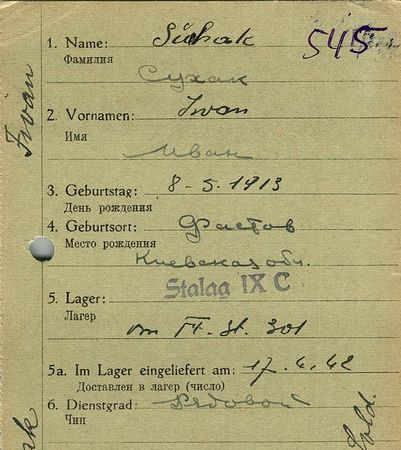 545
1. Name: Suhak
Фамилия
Сухак
2. Vornamen: Iwan
Имя
Иван
3. Geburtstag: 8-5.1913
День рождения
4. Geburtsort: Фастов
Место рождения
Киевская обл.
5. Lager: Stalag IX C
Лагерь
von Fr. St. 301
5a. Im Lager eingeliefert am: 17.4.42
Доставлен в лагерь (число)
6. Dienstgrad: Рядовой
Чин
Iwan
Sold.